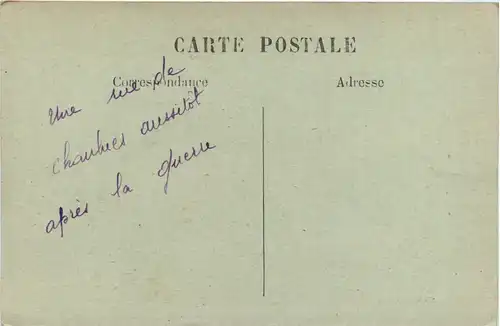 CARTE POSTALE
Correspondance
Adresse
Une rue de
chambres aussitôt
après la guerre